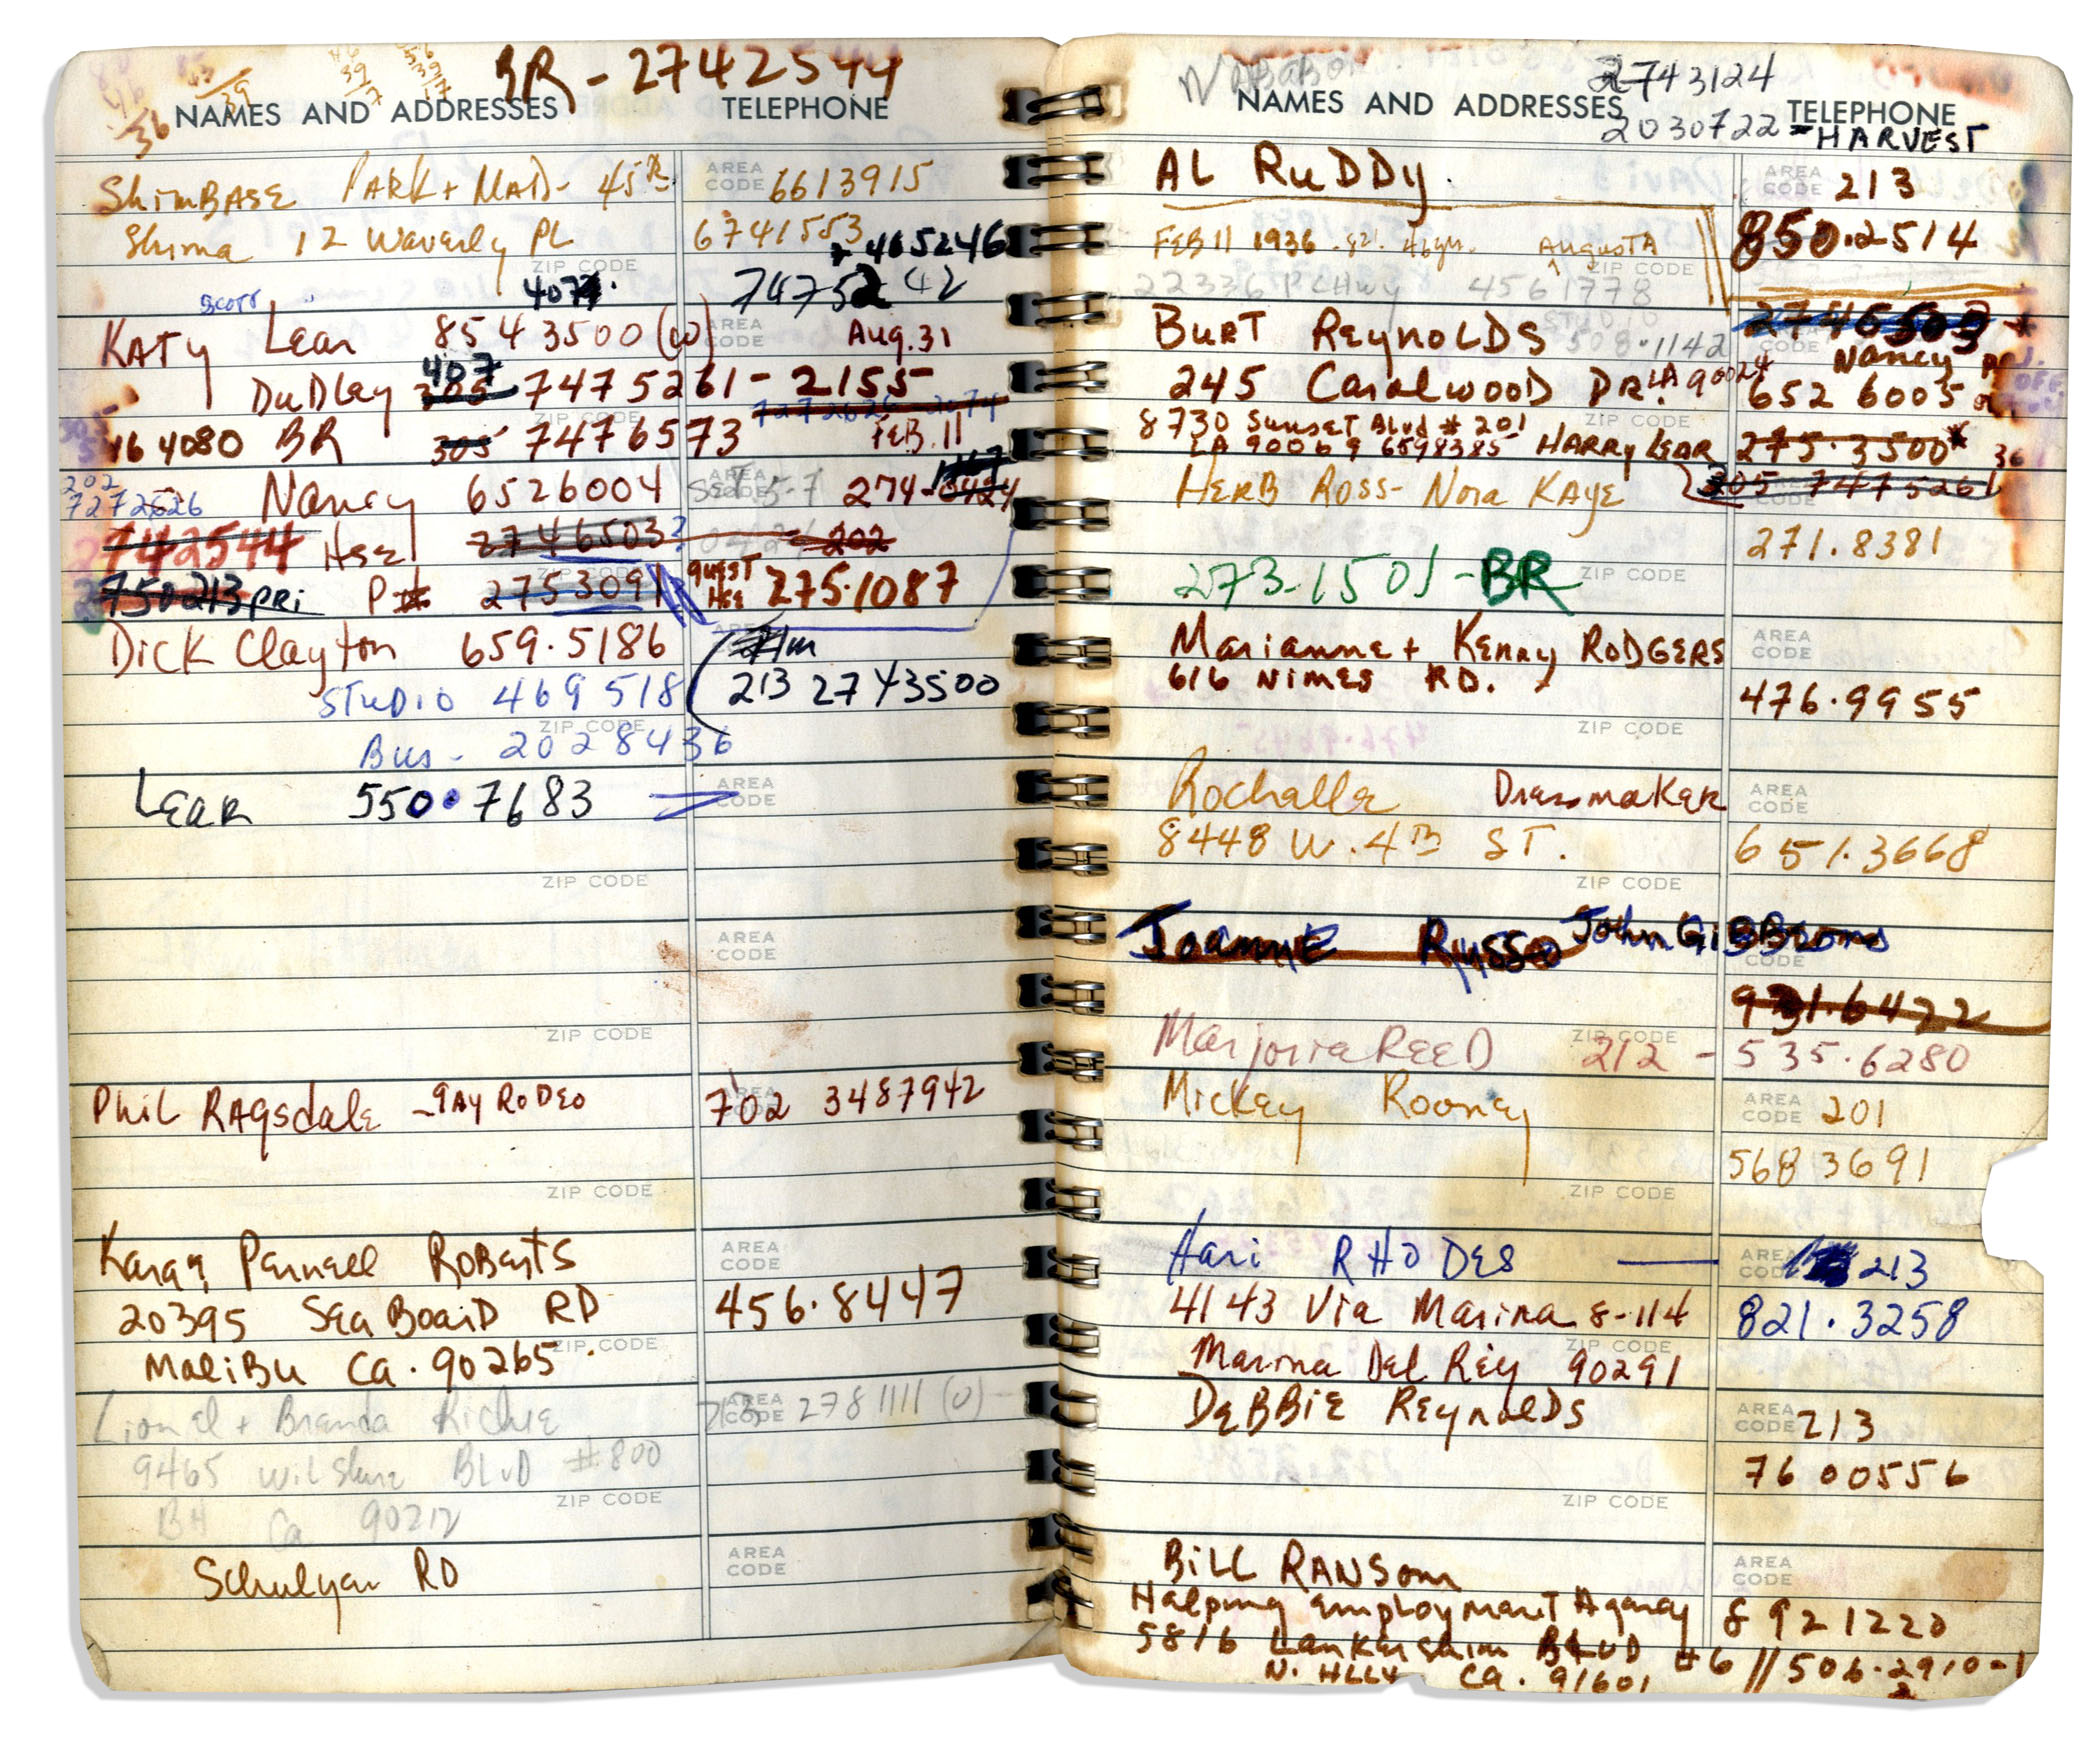 BR - 2742544
NAMES AND ADDRESSES TELEPHONE
36
ShimBASE PARK + MAD - 45th AREA CODE 6613915
Shima 12 Waverly PL 6741553
ZIP CODE + 465246
407 7475242
Scott
KATY Lear 8543500 (W) AREA CODE Aug. 31
DuDley 305 407 7475261 - 2155
ZIP CODE 7272626
464080 BR 305 7476573 FEB. 11
202
7272626 Nancy 6526004 AREA CODE 274-
2742544 HSE 2746503? 202
2750213 PRi P# 2753091 ZIP CODE GUEST HSE 275.1087
Dick Clayton 659.5186 AREA
STUDIO 469 518 213 2743500
ZIP CODE
Bus - 2028436
LEAR 550.7683 AREA CODE
ZIP CODE
AREA CODE
ZIP CODE
Phil RAgsdale - gAy RoDEo AREA CODE 702 3487942
ZIP CODE
Kara, Pernell ROBERTS AREA CODE
20395 SEA BOARD RD 456.8447
ZIP CODE
MaliBu Ca. 90265
Lionel + Brenda Richie AREA CODE 213 2781111 (O) -
9465 WilShire BLVD #800
ZIP CODE
BH Ca 90212
Schulyer RD AREA CODE
2743124
NAMES AND ADDRESSES TELEPHONE
2030722 = HARVEST
AL RuDDy. AREA CODE 213
FEB 11 1936 AugustA 850.2514
ZIP CODE
22336 PCHwy 4561778
STUDIO
BURT REynOLDS 508.1142 CODE 2746503 *
Nancy
245 Carolwood DR. LA 90024 652 6005
ZIP CODE
8730 Sunset Blvd # 201
LA 90069 6598385 HARRy LEAR 275.3500 *
HERB ROSS - Nora KAYE CODE 305 7475261
271.8381
273-1501 - BR ZIP CODE
Marianne + Kenny RODGERS AREA CODE
616 NIMES RD. 476.9955
ZIP CODE
Rochelle DressmaKER AREA CODE
8448 W. 4th ST. 651.3668
ZIP CODE
JoannE Russo John GiBBons CODE
931.6422
ZIP CODE
Marjorie REED 212 - 535.6280
Mickey Rooney AREA CODE 201
5683691
ZIP CODE
Hari RHODES — AREA CODE 213
4143 Via Marina 8-114 821.3258
ZIP CODE
Marina Del Rey 90291
DEBBiE REynolDS AREA CODE 213
7600556
ZIP CODE
BiLL RANSom AREA CODE
Helping Employment Agency 8921220
5816 Lankershim BLVD #6 // 506.2910-1
N. HLLY Ca. 91601